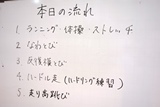 本日の流れ
1. ランニング・体操・ストレッチ
2. なわとび
3. 反復横とび
4. ハードル走(ハードリング練習)
5. 走り高跳び